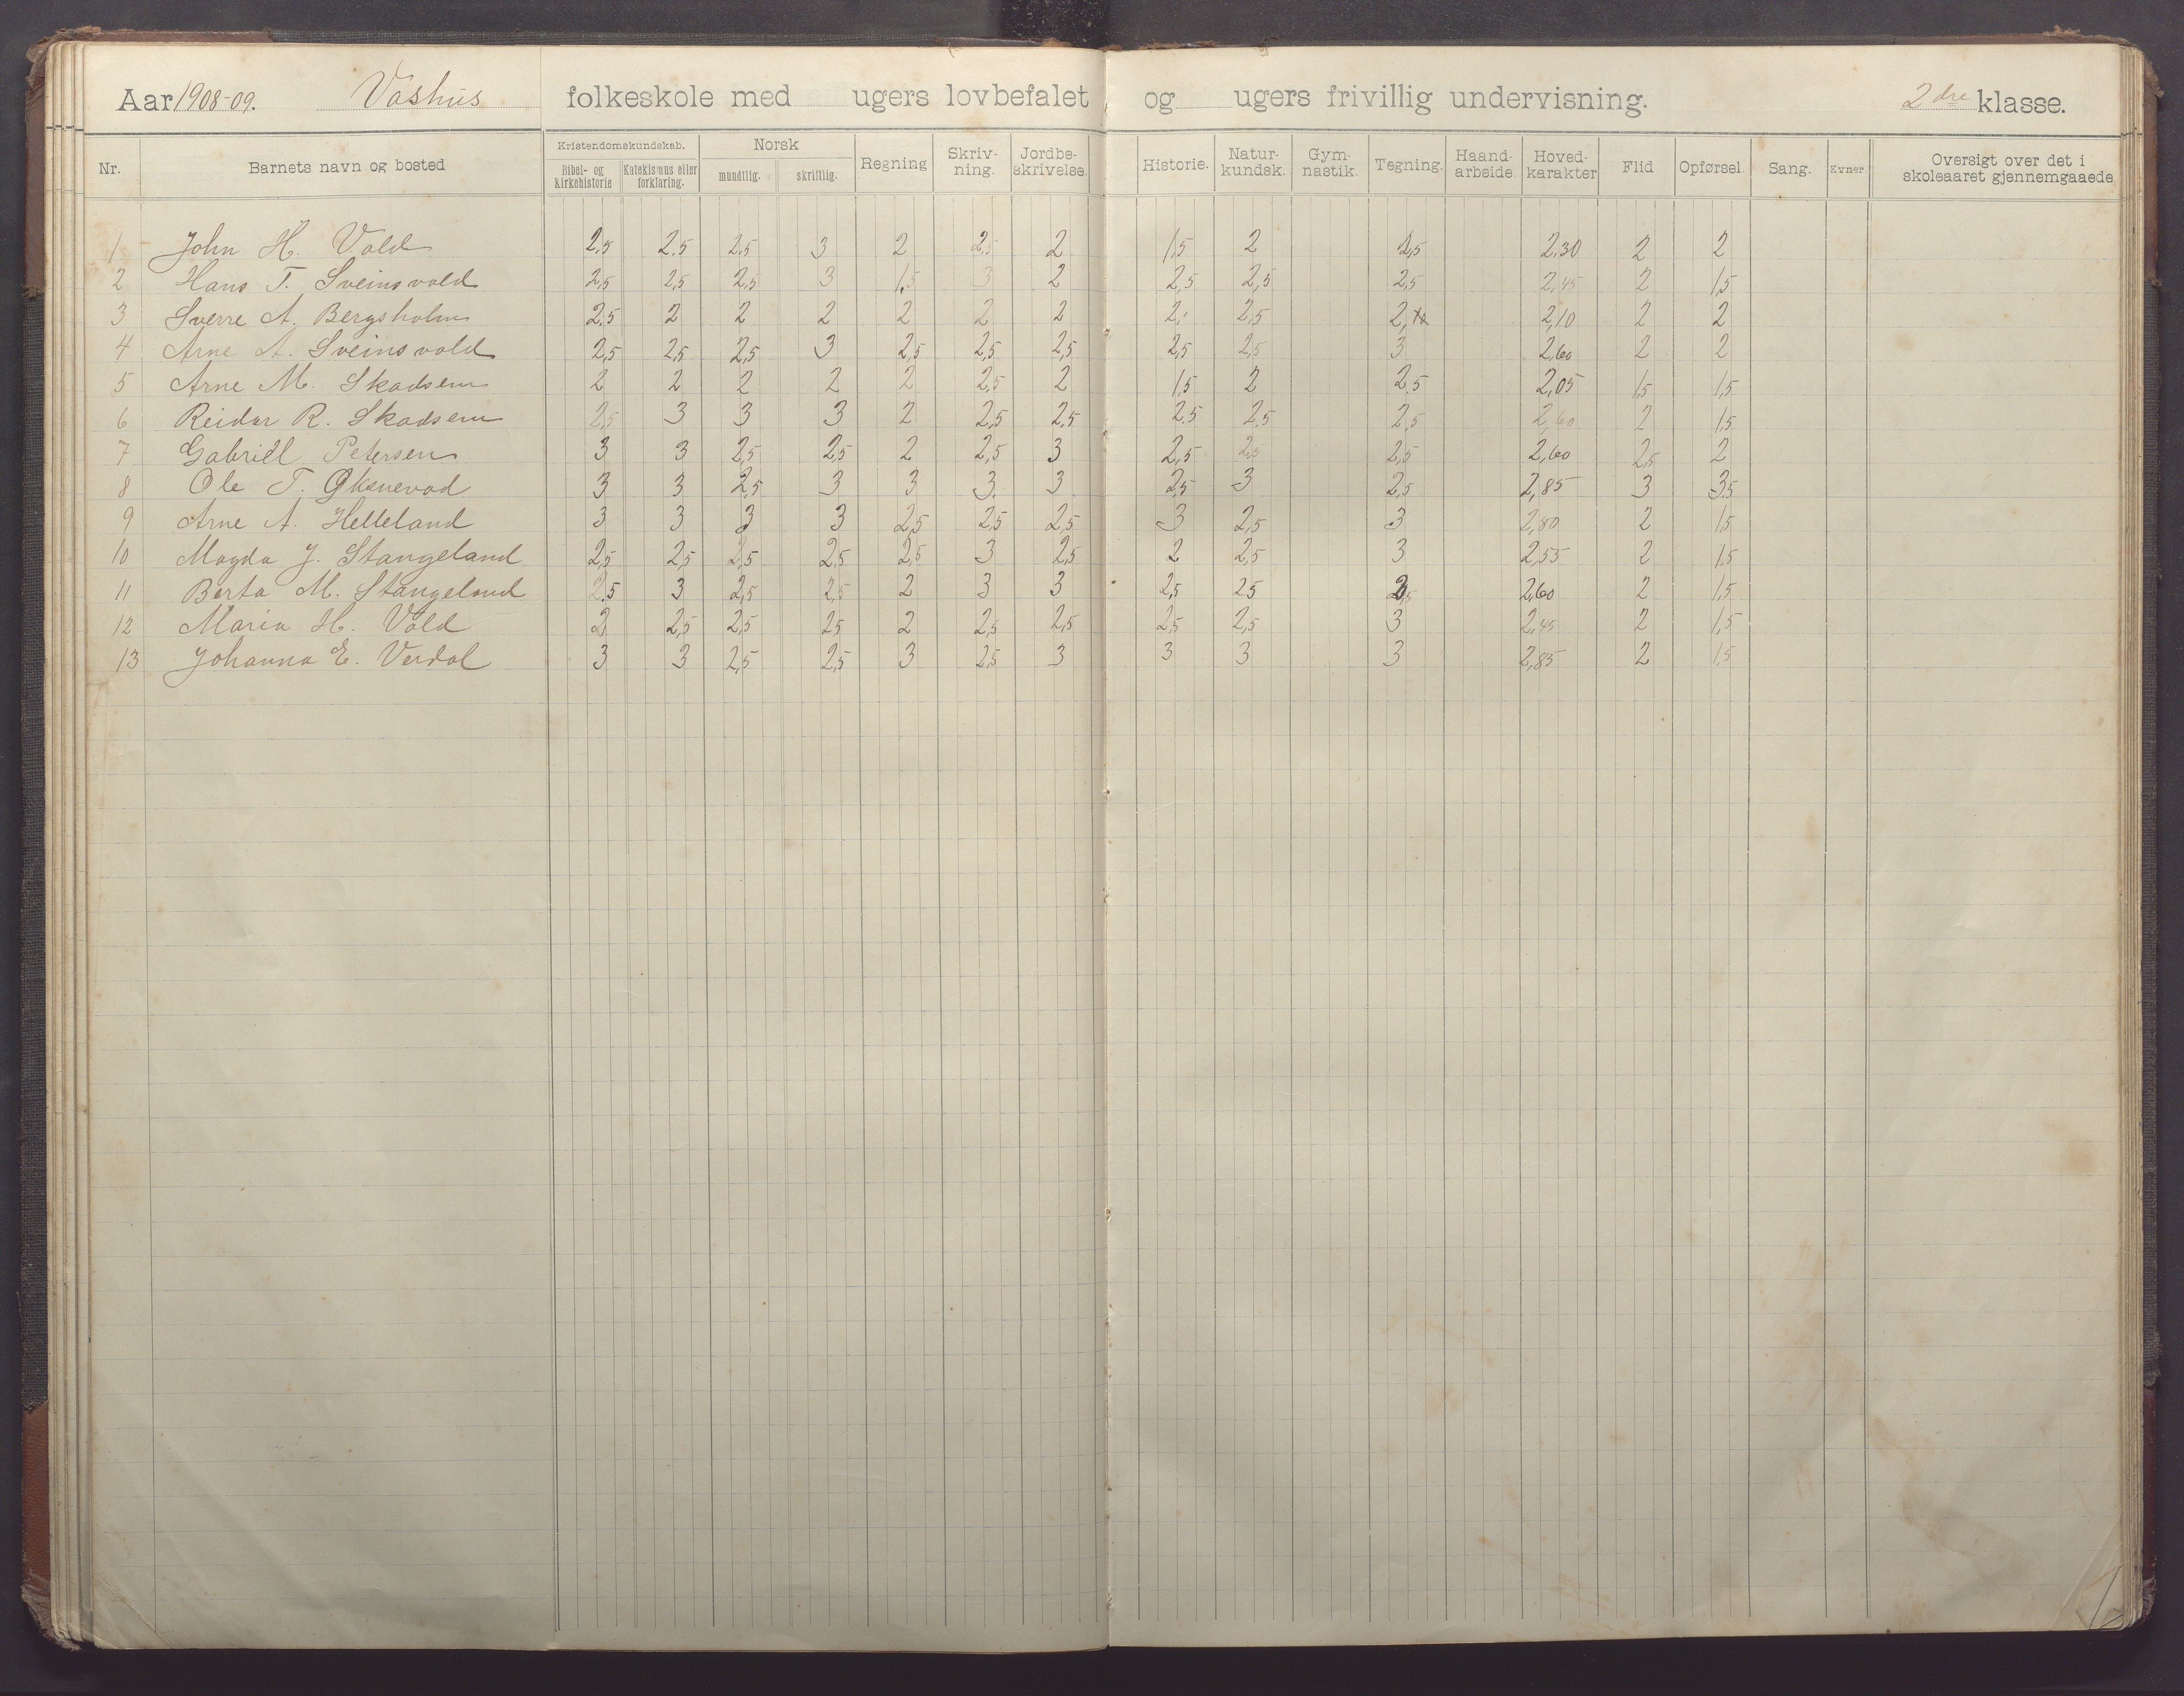 Aar 1908-09. Vashus folkeskole med ugers lovbefalet og ugers frivillig undervisning. 2dre klasse.
Nr. Barnets navn og bosted Kristendomskundskab. Bibel- og kirkehistorie Katekismus eller forklaring. Norsk mundtlig. skriftlig. Regning Skriv-ning. Jordbe-skrivelse. Historie. Natur-kundsk. Gym-nastik. Tegning. Haand-arbeide. Hoved-karakter Flid Opførsel. Sang. Evner Oversigt over det i skoleaaret gjennemgaaede
1 John H. Vold 2,5 2,5 2,5 3 2 2,5 2 1,5 2 2,5 2,30 2 2
2 Hans T. Sveinsvold 2,5 2,5 2,5 3 1,5 3 2 2,5 2,5 2,5 2,45 2 1,5
3 Sverre A. Bergsholm 2,5 2 2 2 2 2 2 2, 2,5 2, 2,10 2 2
4 Arne A. Sveinsvold 2,5 2,5 2,5 3 2,5 2,5 2,5 2,5 2,5 3 2,60 2 2
5 Arne M. Skadsem 2 2 2 2 2 2,5 2 1,5 2 2,5 2,05 1,5 1,5
6 Reidar R. Skadsem 2,5 3 3 3 2 2,5 2,5 2,5 2,5 2,5 2,60 2 1,5
7 Gabriel Petersen 3 3 2,5 2,5 2 2,5 3 2,5 2,5 2,5 2,60 2,5 2
8 Ole T. Øksnevad 3 3 2,5 3 3 3. 3 2,5 3 2,5 2,85 3 3,5
9 Arne A. Helleland 3 3 3 3 2,5 2,5 2,5 3 2,5 3 2,80 2 1,5
10 Magda J. Stangeland 2,5 2,5 2,5 2,5 2,5 3 2,5 2 2,5 3 2,55 2 1,5
11 Berta M. Stangeland 2,5 3 2,5 2,5 2 3 3 2,5 2,5 2,5 2,60 2 1,5
12 Maria H. Vold 2 2,5 2,5 2,5 2 2,5 2,5 2,5 2,5 3 2,45 2 1,5
13 Johanna E. Verdal 3 3 2,5 2,5 3 2,5 3 3 3 3 2,85 2 1,5